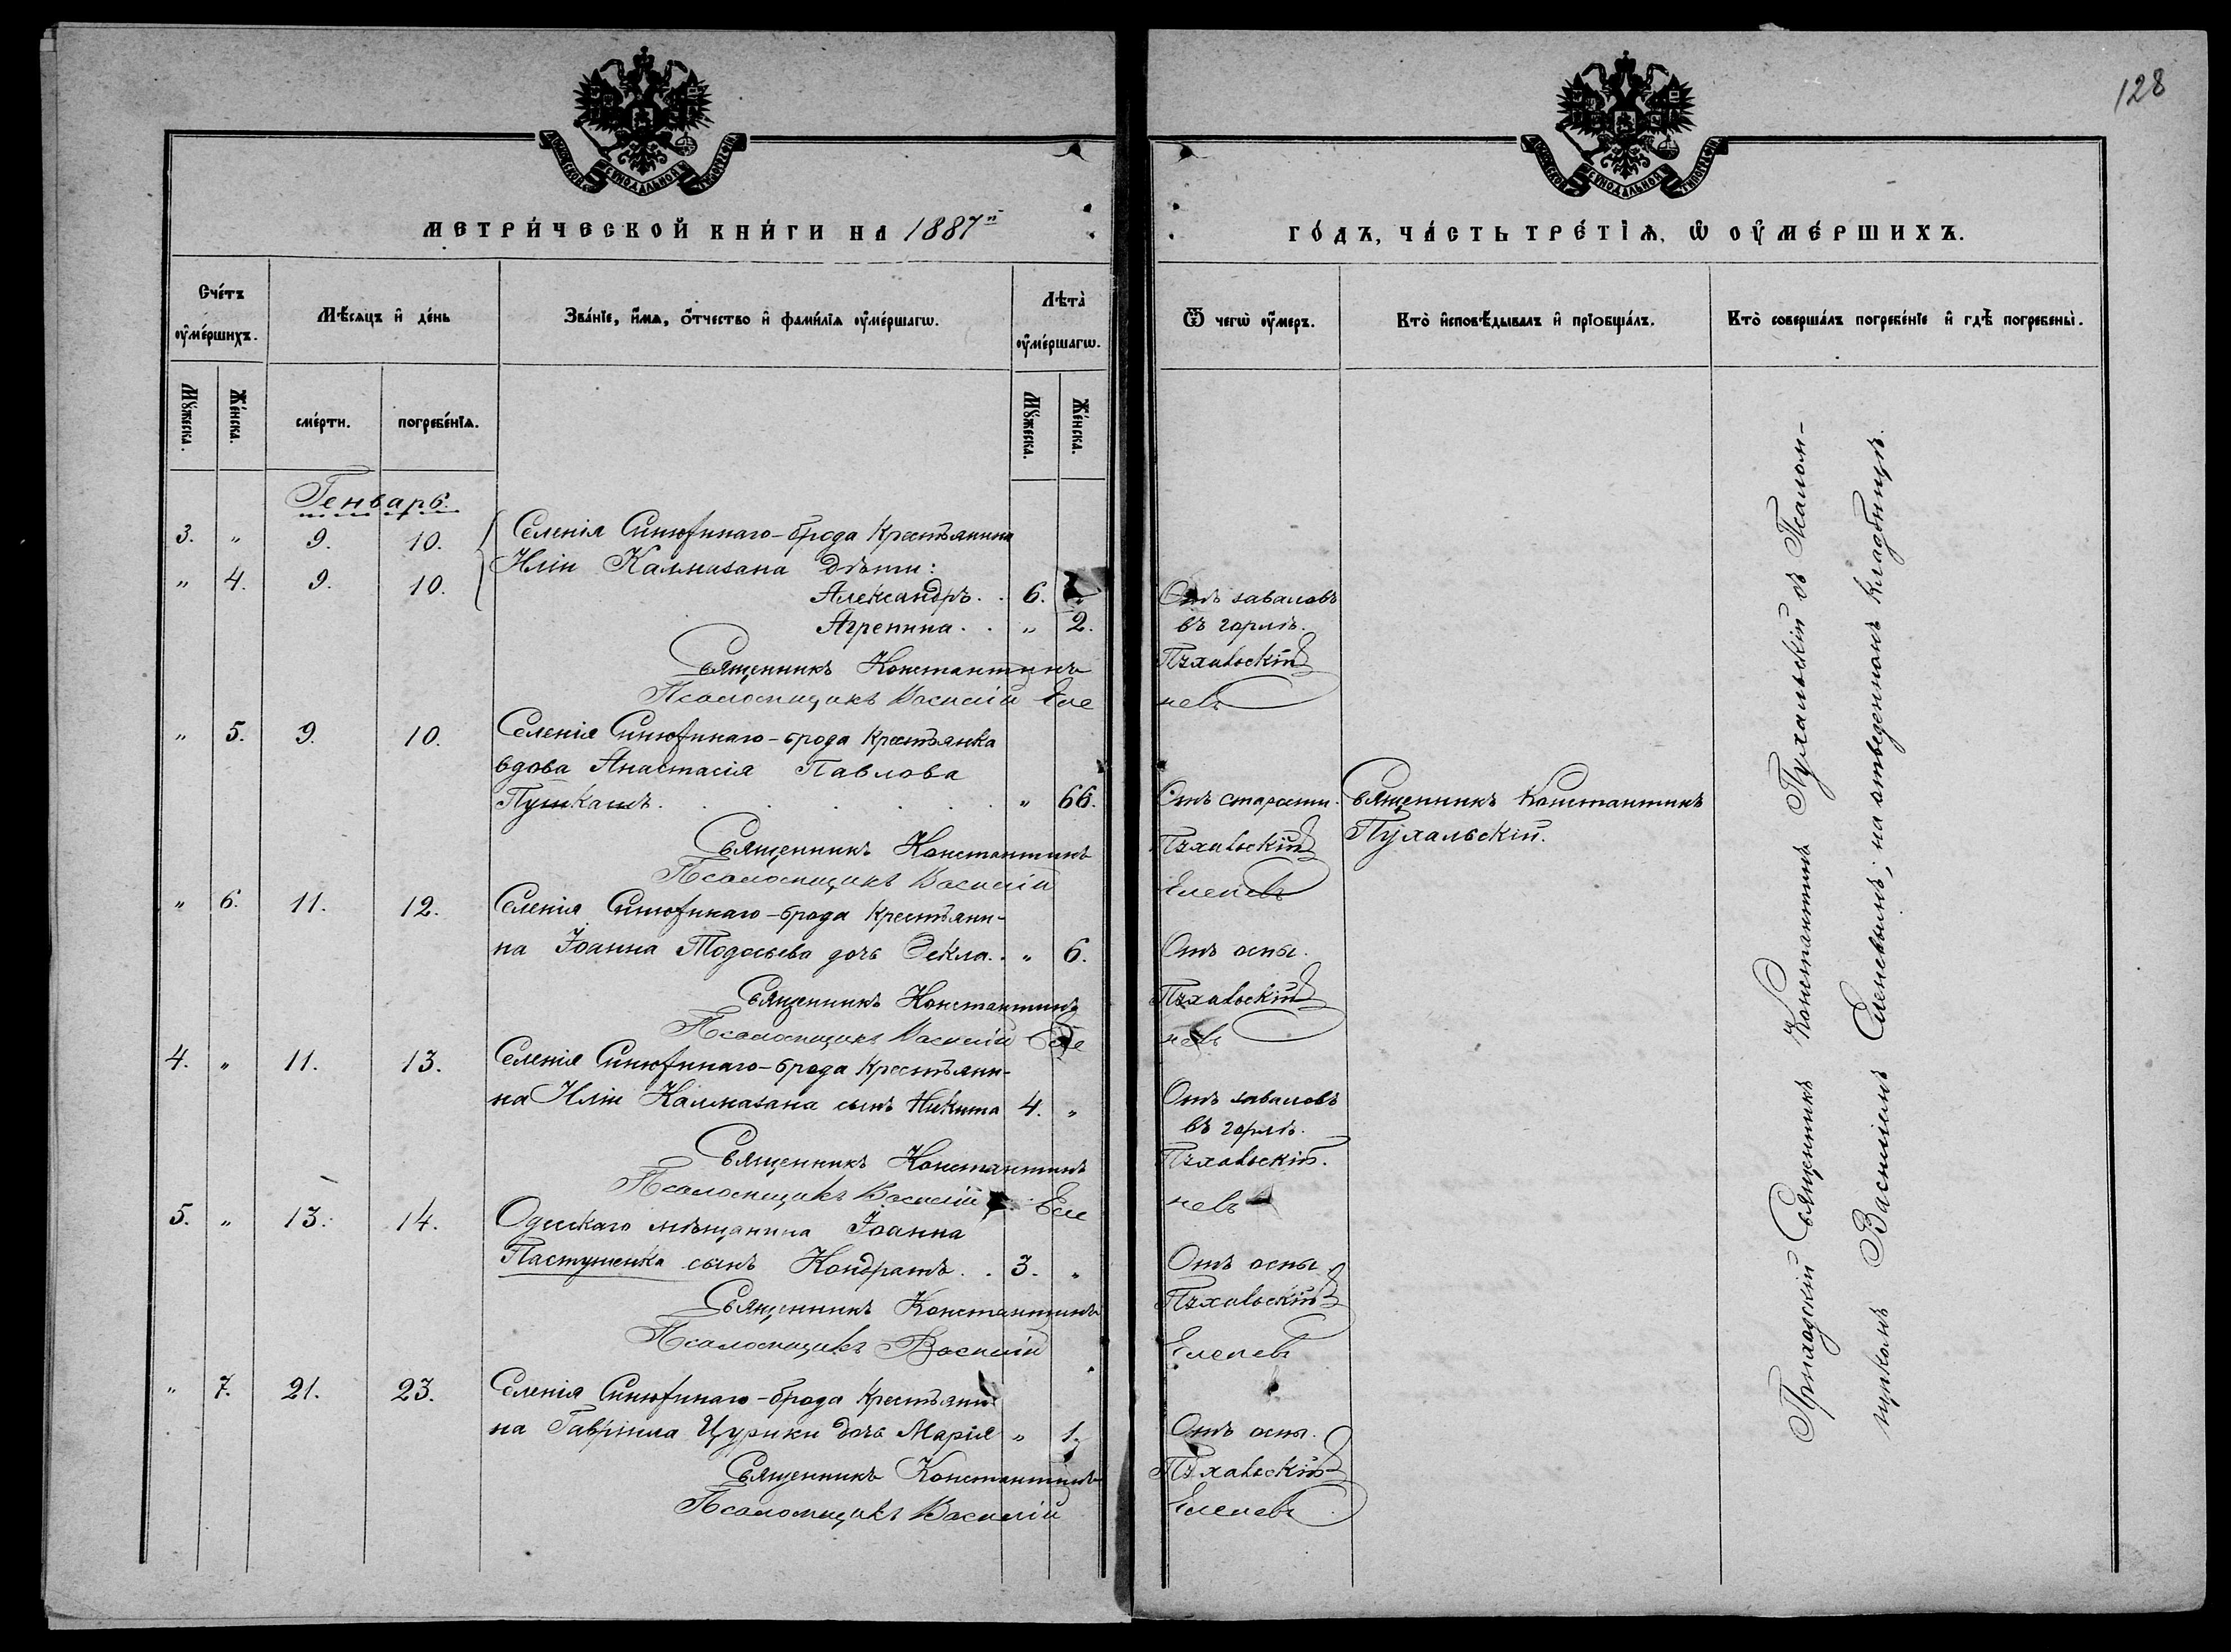 128
МЕТРИ́ЧЕСКОЙ КНИ́ГИ НА 1887й
ГО́ДЪ, ЧА́СТЬ ТРЕ́ТІѦ, Ѡ ОУ҆МЕ́РШИХЪ.
Счéтъ оу҆мéршихъ.
Мѣ́сяцъ и҆ дéнь
Звáнїе, и҆́мѧ, ѻ҆́тчество и҆ фамилїѧ оу҆мéршагѡ.
Лѣта̀ оу҆мéршагѡ.
Ѿ чегѡ̀ оу҆́меръ.
Кто̀ и҆сповѣ́дывалъ и҆ прїобщáлъ.
Кто̀ совершáлъ погребéнїе и҆ гдѣ̀ погребены̀.
Мꙋ́жеска.
Жéнска.
смéрти.
погребéнїѧ.
Мꙋ́жеска.
Жéнска.
Генварь.
3. " 9. 10. Селенія Синюхинаго-брода Крестьянина
" 4. 9. 10. Иліи Калмазана дѣти:
Александръ. . 6. Отъ заваловъ
Агрепина. . " 2. въ горлѣ.
Священникъ Константинъ Пухальскій
Псаломщикъ Василій Еленевъ
" 5. 9. 10. Селенія Синюхинаго-брода Крестьянка
вдова Анастасія Павлова
Пушкашъ. . . . . . . " 66. Отъ старости. Священникъ Константинъ
Пухальскій.
Священникъ Константинъ Пухальскій
Псаломщикъ Василій Еленевъ
" 6. 11. 12. Селенія Синюхинаго-брода Крестьяни-
на Іоанна Тодосьева дочь Ѳекла. . " 6. Отъ оспы.
Священникъ Константинъ Пухальскій
Псаломщикъ Василій Еленевъ
4. " 11. 13. Селенія Синюхинаго-брода Крестьяни-
на Иліи Калмазана сынъ Никита 4. " Отъ заваловъ
въ горлѣ.
Священникъ Константинъ Пухальскій.
Псаломщикъ Василій Еленевъ
5. " 13. 14. Одесскаго мѣщанина Іоанна
Пастушенка сынъ Кондратъ. . 3. " Отъ оспы
Священникъ Константинъ Пухальскій
Псаломщикъ Василій Еленевъ
" 7. 21. 23. Селенія Синюхинаго-брода Крестьяни-
на Гавріила Цурики дочь Марія " 1. Отъ оспы.
Священникъ Константинъ Пухальскій
Псаломщикъ Василій Еленевъ
Приходскій Священникъ Константинъ Пухальскій съ Псалом-
щикомъ Василіемъ Еленевымъ; на отведенномъ кладбищѣ.